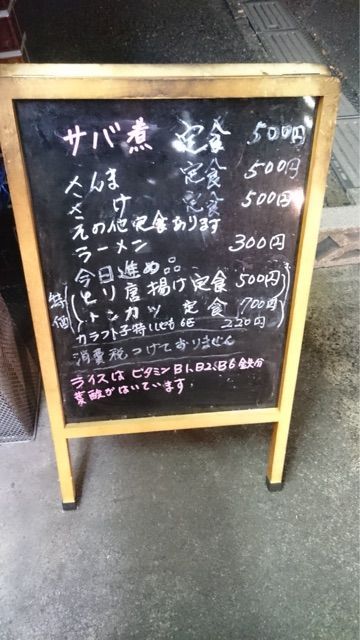 サバ煮 定食 500円
さんま 定食 500円
さけ 定食 500円
その他定食あります
ラーメン 300円
今日進め品
特価
とり唐揚げ定食 500円
トンカツ 定食 700円
カラフト子持ししゃも 220円
消費税つけておりません
ライスは ビタミンB1、B2、B6 鉄分
葉酸がはいています